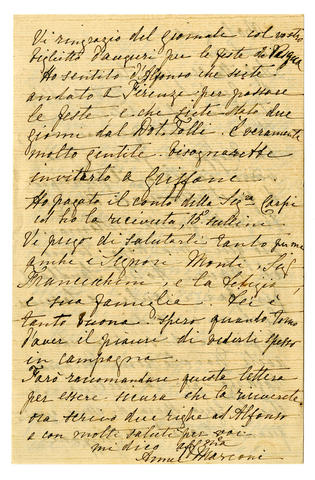 Vi ringrazio del Giornale col vostro
biglietto d'auguri per le feste di Pasqua
Ho sentito d'Alfonso che siete
andato a Firenze per passare
le feste e che siete stato due
giorni dal Dott. Tolle. È veramente
molto gentile. Bisognarebbe
invitarlo a Griffone
Ho pagato il conto delle Sig.re Carpi
ed ho la ricevuta,
Vi prego di salutarli tanto per me
anche i Signori Monti, Sig.
Franceschini e la Letizia
e sua famiglia. Lei è
tanto buona. Spero quanto torno
d'aver il piacere di vederli spesso
in campagna.
Farò raccomandare questa lettera
per essere sicura che la riceverete.
Ora scrivo due righe ad Alfonso
e con molti saluti per voi
mi dico
Annie Marconi